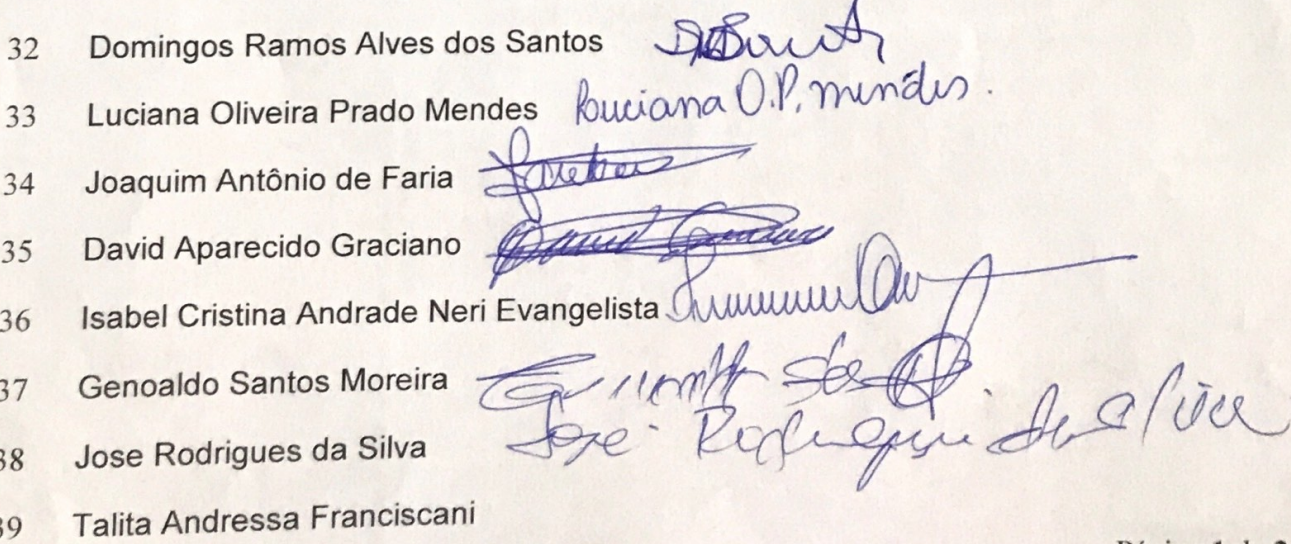 32 Domingos Ramos Alves dos Santos
33 Luciana Oliveira Prado Mendes Luciana O.P. mendes.
34 Joaquim Antônio de Faria
35 David Aparecido Graciano
36 Isabel Cristina Andrade Neri Evangelista
37 Genoaldo Santos Moreira
38 Jose Rodrigues da Silva José Rodrigues da Silva
39 Talita Andressa Franciscani